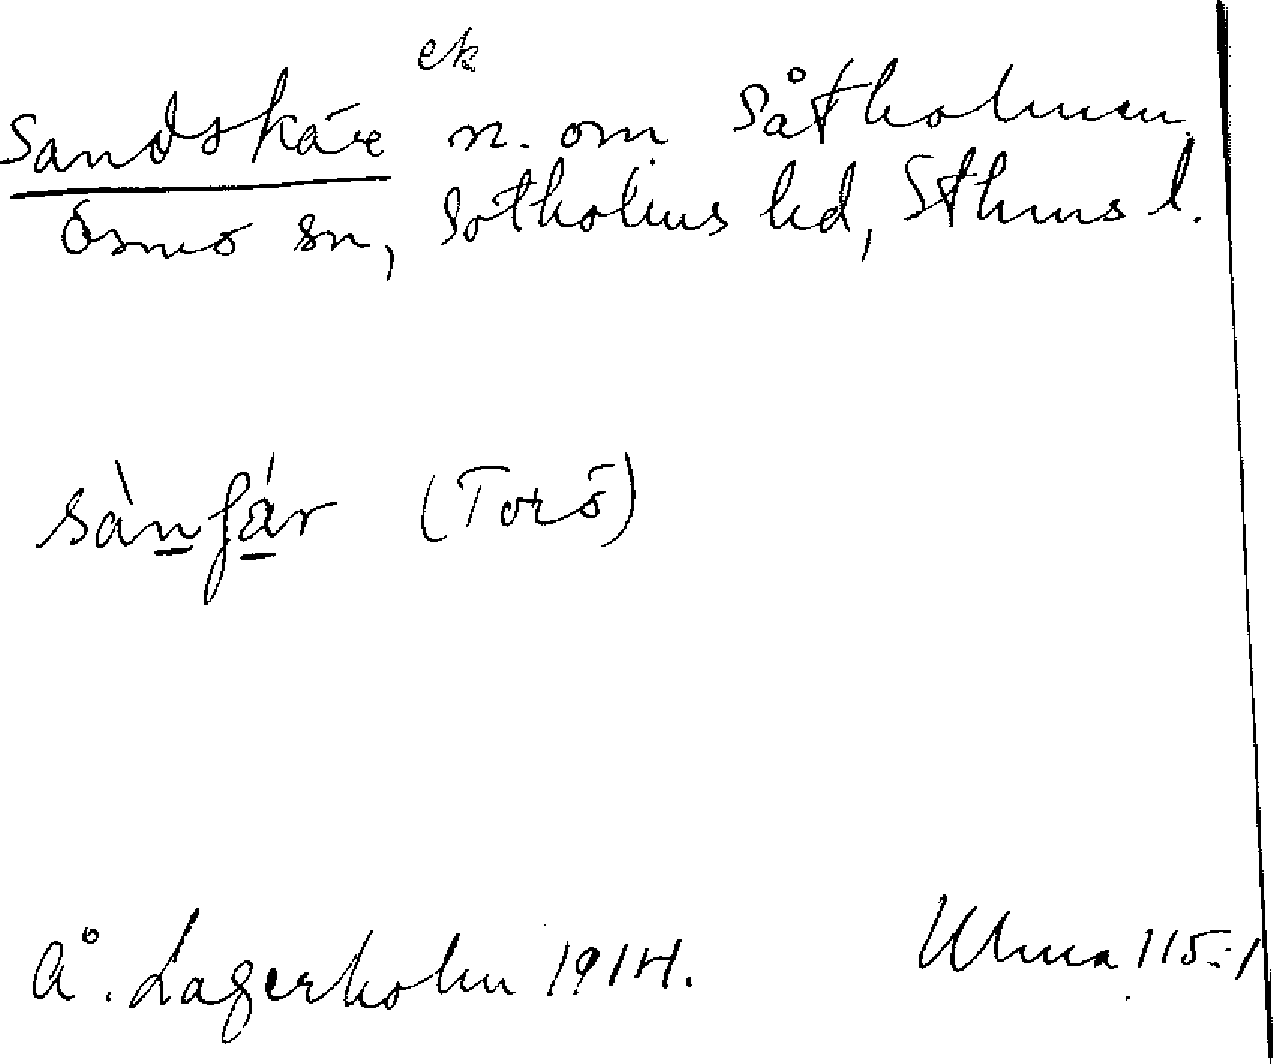 ek
Sandskär n. om Såtholmen
Ösmo sn, Sotholms hd, Sthms l.
sànʃár (Torö)
Å. Lagerholm 1914.
Ulma 115:1